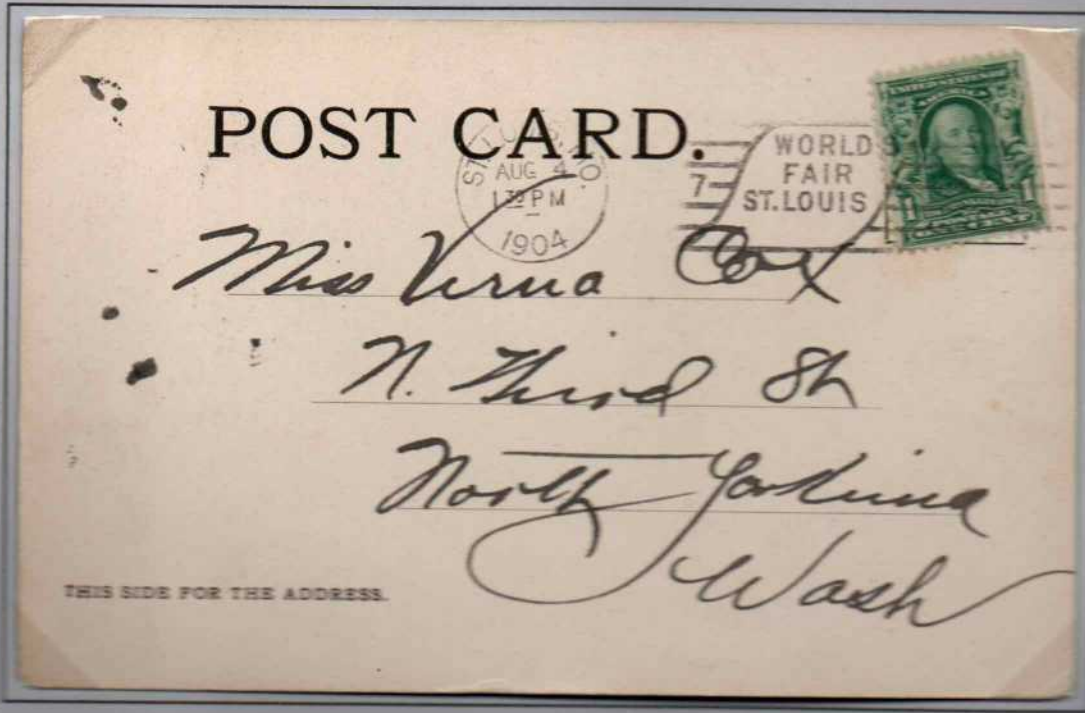 POST CARD.
ST. LOUIS, MO.
AUG 4
1 30 PM
1904
7
WORLDS
FAIR
ST. LOUIS
UNITED STATES OF AMERICA
1 1
Miss Verna Cox
N. Third St
North Yakima
Wash
THIS SIDE FOR THE ADDRESS.